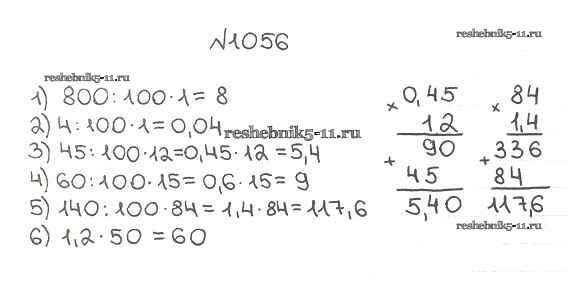 №1056
reshebnik5-11.ru
reshebnik5-11.ru
1) 800:100·1=8
2) 4:100·1=0,04
reshebnik5-11.ru
3) 45:100·12=0,45·12=5,4
4) 60:100·15=0,6·15=9
5) 140:100·84=1,4·84=117,6
6) 1,2·50=60
× 0,45
12
90
+ 45
5,40
× 84
1,4
+ 336
84
117,6
reshebnik5-11.ru